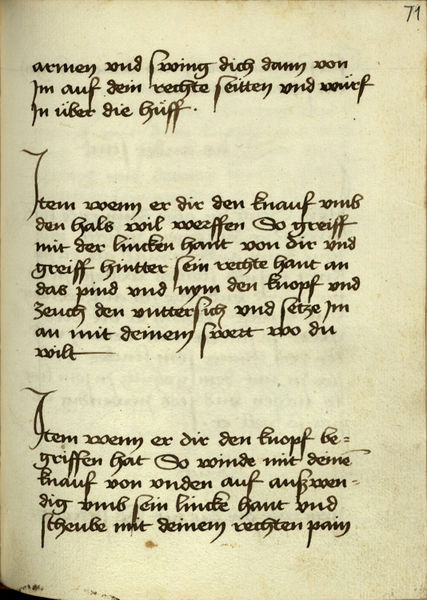 71
armen vnd swing dich dann von
Im auf dein rechte seitten vnd würf
In über die hüff ·
Item wenn er dir den knauf vmb
den hals wil werffen So greiff
mit der lincken hant von dir vnd
greiff hintter sein rechte hant an
das pind vnd nym den knopf vnd
zeuch den vnttersich vnd setze Im
an mit deinem swert wo du
wilt
Item wenn er dir den knopf be=
griffen hat So winde mit deinē
knauf von vnden auf auszwen=
dig vmb sein lincke hant vnd
scheube mit deinem rechten pain